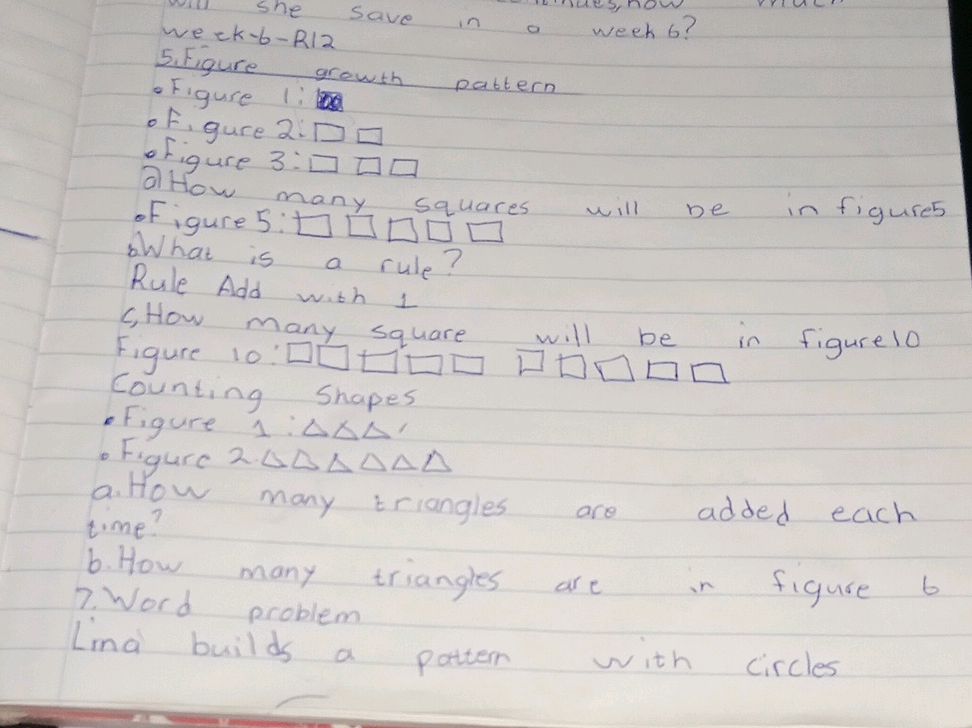 will she save in a week 6?
week-6-R12
5.Figure growth pattern
•Figure 1:
•Figure 2:□ □
•Figure 3:□ □ □
a)How many squares will be in figure5
•Figure 5:□ □ □ □ □
b.What is a rule?
Rule Add with 1
c,How many square will be in figure10
Figure 10:□ □ □ □ □ □ □ □ □ □
Counting shapes
•Figure 1:△△△
•Figure 2.△△△△△△
a.How many triangles are added each
time?
b.How many triangles are in figure 6
7.Word problem
Lina builds a pattern with circles